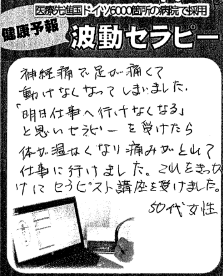 医療先進国ドイツ6000箇所の病院で採用
健康予報
波動セラピー
神経痛で足が痛くて
動けなくなってしまいました。
「明日仕事へ行けなくなる」
と思いセラピーを受けたら
体が温なくなり痛みがとれて
仕事に行けました。これをきっか
けにセラピスト講座を受けました。
50代女性